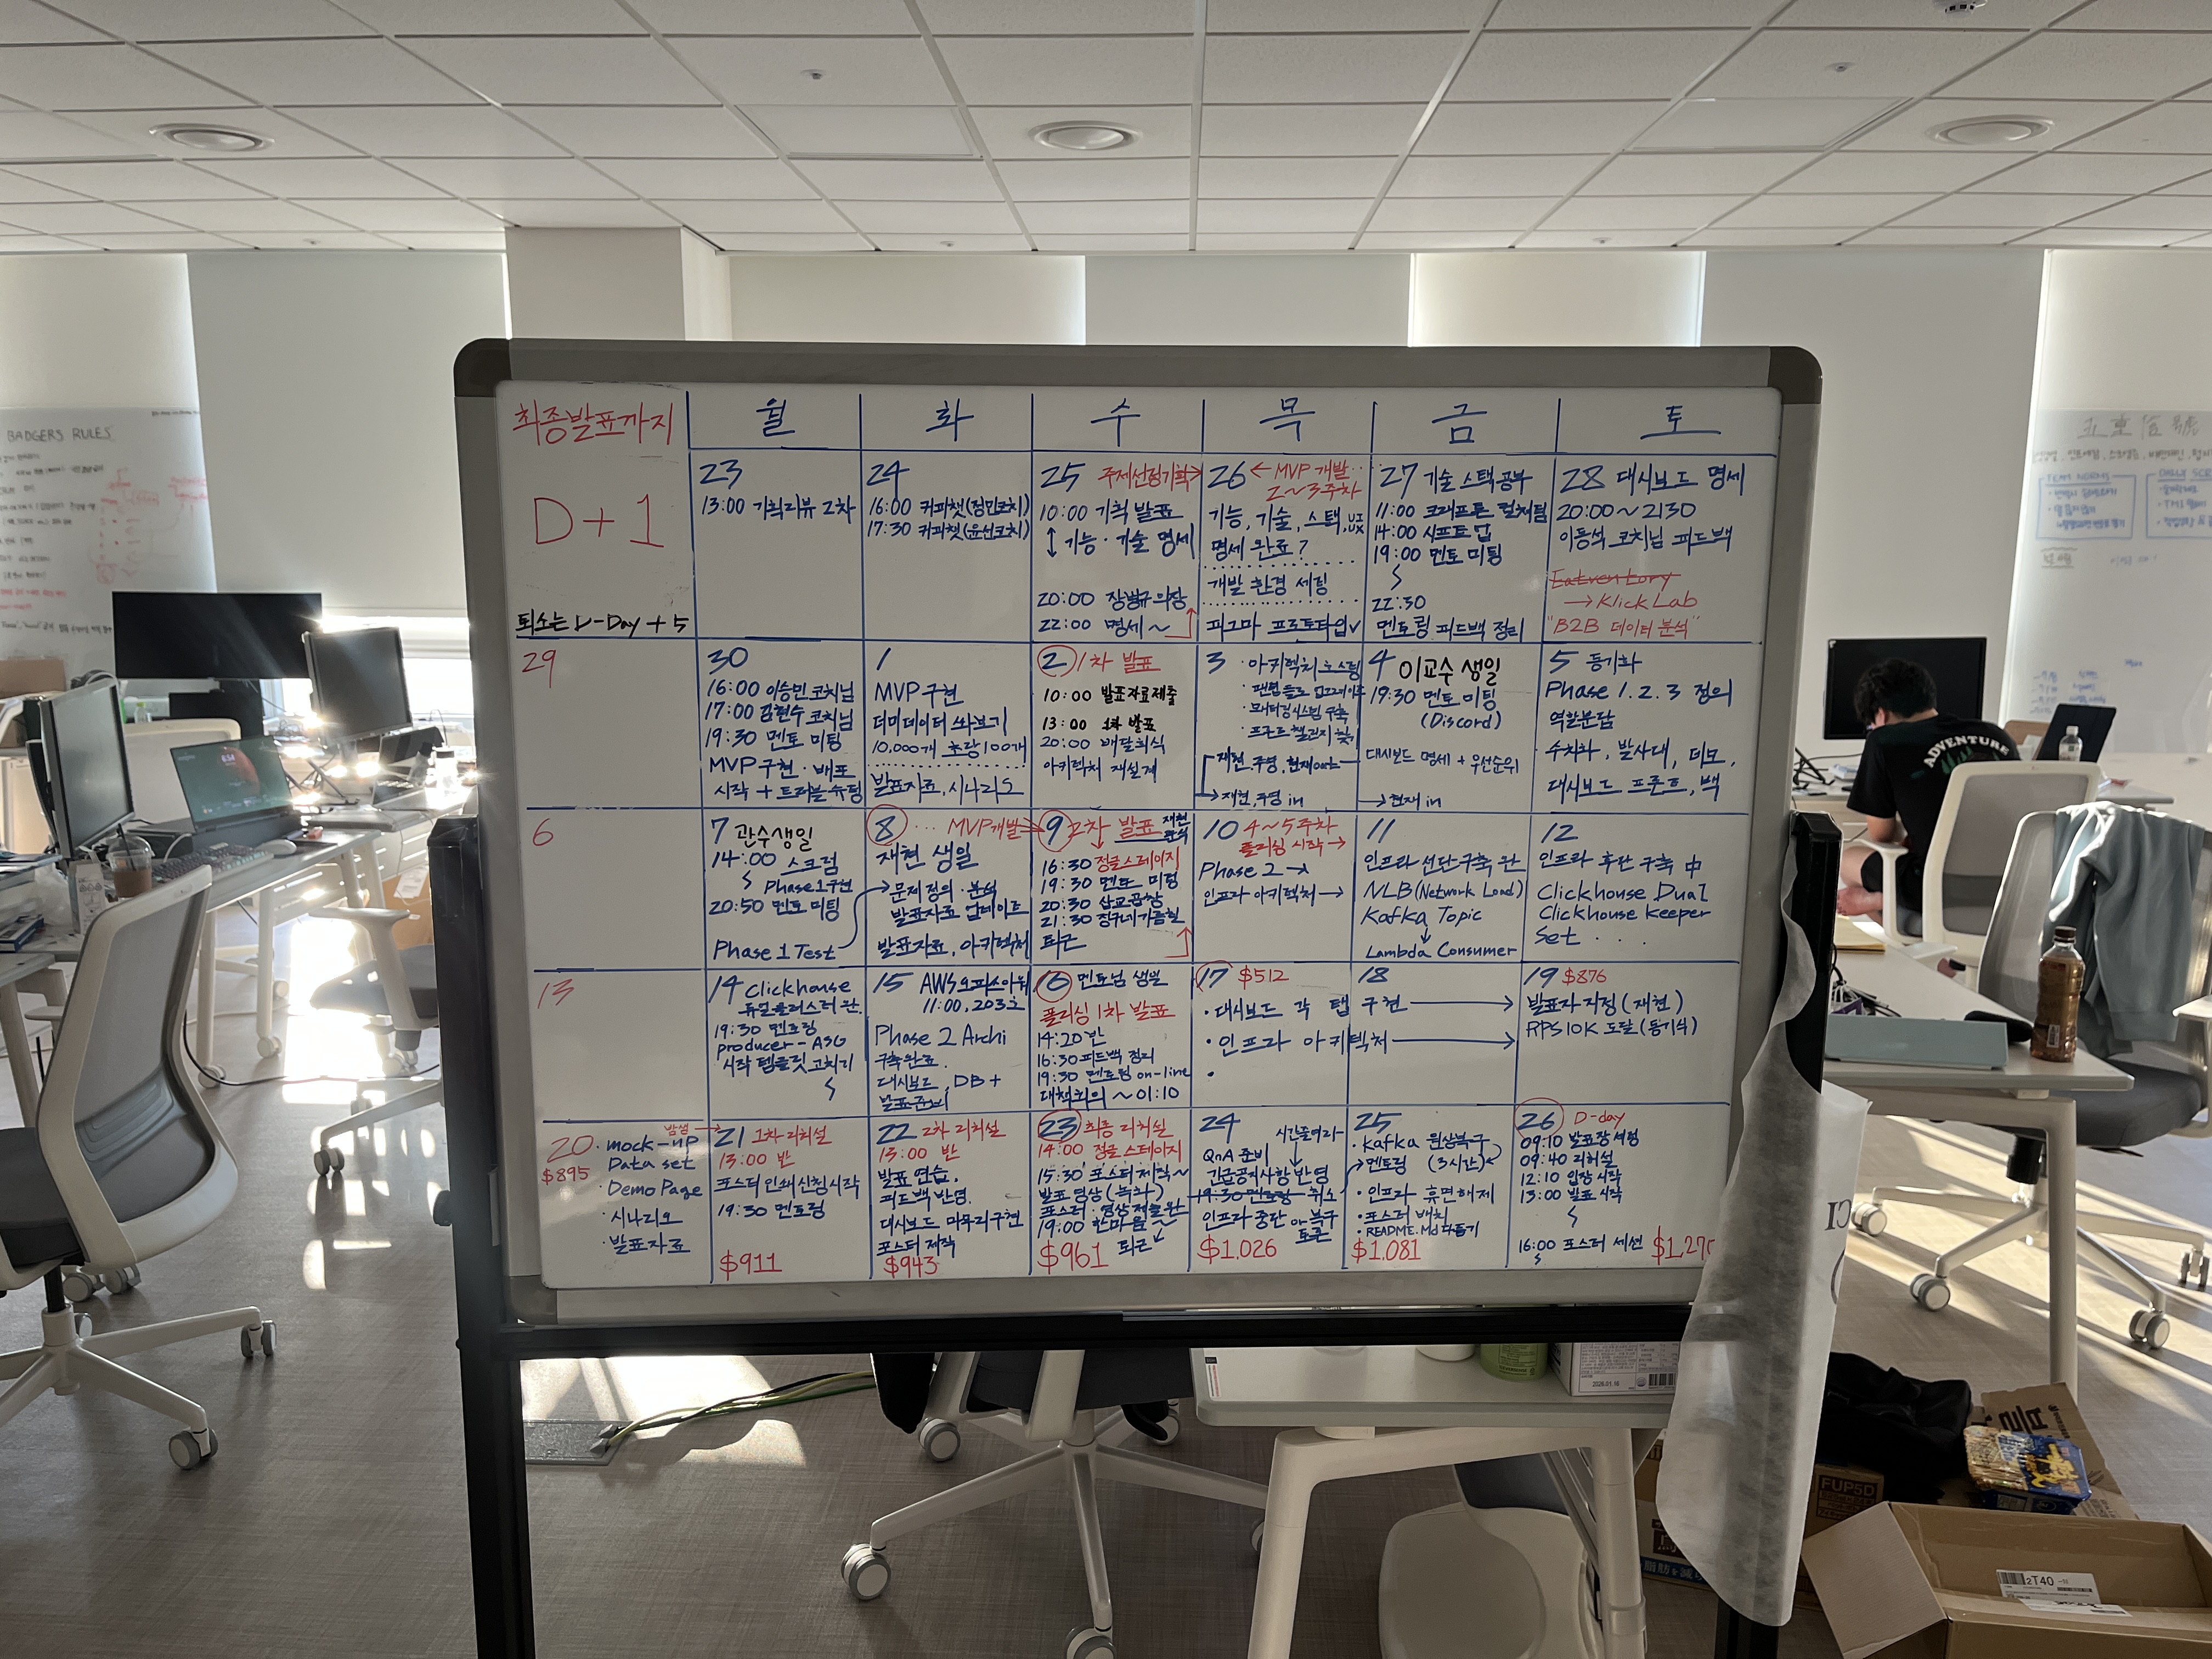 최종발표까지
D+1
퇴소는 D-Day + 5
월
화
수
목
금
토
23
13:00 기획리뷰 2차
24
16:00 커피챗(정민코치)
17:30 커피챗(윤선코치)
25 주제선정기획→
10:00 기획 발표
↕ 기능·기술 명세
20:00 장병규 의장
22:00 명세~
26 ← MVP 개발
2~3주차
기능, 기술, 스택, UI UX
명세 완료?
개발 환경 세팅
피그마 프로토타입✓
27 기술 스택 공부
11:00 크래프톤 컬쳐팀
14:00 시프트업
19:00 멘토 미팅
22:30
멘토링 피드백 정리
28 대시보드 명세
20:00~2130
이동석 코치님 피드백
Eatventory
→ Klick Lab
"B2B 데이터 분석"
29
30
16:00 이승민 코치님
17:00 김현수 코치님
19:30 멘토 미팅
MVP 구현·배포
시작 + 트러블 슈팅
1
MVP 구현
더미데이터 쏴보기
10,000개 초당 100개
발표자료, 시나리오
2 1차 발표
10:00 발표자료제출
13:00 1차 발표
20:00 배달회식
아키텍처 재설계
3 · 아키텍처
· 모니터링시스템 구축
→ 재현, 주명 in
4 이교수 생일
19:30 멘토 미팅
(Discord)
대시보드 명세 + 우선순위
→ 현재 in
5 동기화
Phase 1.2.3 정의
역할분담
수치화, 발사대, 데모,
대시보드 프론트, 백
6
7 관수생일
14:00 스크럼
Phase 1 구현
20:50 멘토 미팅
Phase 1 Test
8 ... MVP개발→
재현 생일
→ 문제 정의·분석
발표자료 업데이트
발표자료, 아키텍처
9 2차 발표
16:30 정글스테이지
19:30 멘토 미팅
20:30 삼교곱창
퇴근
10 4~5주차
폴리싱 시작→
Phase 2→
인프라 아키텍처→
11
인프라 선단구축 완
NLB(Network Load)
Kafka Topic
↓
Lambda Consumer
12
인프라 후단 구축 中
Clickhouse Dual
Clickhouse Keeper
Set . . .
13
14 Clickhouse
듀얼클러스터 완.
19:30 멘토링
producer-ASG
시작 템플릿 고치기
15 AWS오피스아워
11:00, 203호
Phase 2 Archi
구축완료.
대시보드, DB +
발표준비
16 멘토님 생일
폴리싱 1차 발표
14:20 반
16:30 피드백 정리
19:30 멘토링 on-line
대책회의 ~01:10
17 $512
· 대시보드 각 탭 구현
· 인프라 아키텍처
·
18
19 $876
발표자 지정(재현)
RPS 10K 도달(동기식)
20 · mock-up
$895
Data set
· Demo Page
· 시나리오
· 발표자료
밤샘→
21 1차 리허설
13:00 반
포스터 인쇄신청시작
19:30 멘토링
$911
22 2차 리허설
13:00 반
발표 연습,
피드백 반영.
대시보드 마무리구현
포스터 제작
$943
23 최종 리허설
14:00 정글 스테이지
15:30 포스터 제작~
발표 영상(녹화)
포스터·영상 제출 완
19:00 한마음~
$961 퇴근
24 시간줄여라
QnA 준비
긴급공지사항 반영
19:30 멘토링 취소
인프라 중단 or 복구
토론
$1,026
25
· Kafka 원상복구
· 멘토링 (3시간)
· 인프라 휴면해제
· 포스터 배치
· README.Md 다듬기
$1,081
26 D-day
09:10 발표장 세팅
09:40 리허설
12:10 입장 시작
13:00 발표 시작
16:00 포스터 세션
BADGERS RULES
TEAM NORMS
ADVENTURE
FUP5D
2T40
2026.01.16